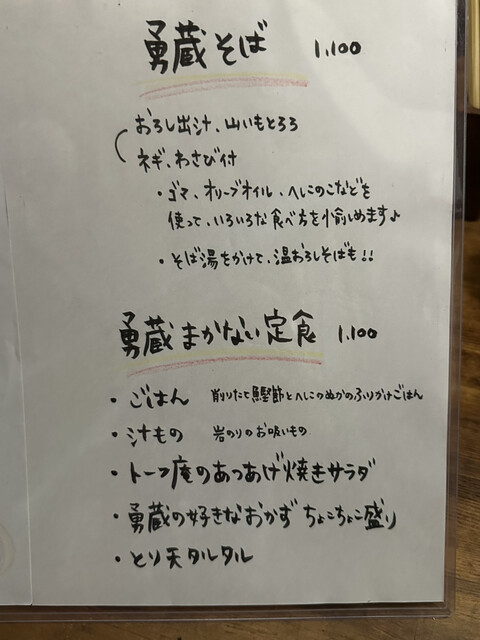 勇蔵そば 1,100
おろし出汁、山いもとろろ
ネギ、わさび付
・ゴマ、オリーブオイル、へしこのこなどを
使って、いろいろな食べ方を愉しめます♪
・そば湯をかけて、温おろしそばも!!
勇蔵まかない定食 1,100
・ごはん 削りたて鰹節とへしこのぬかのふりかけごはん
・汁もの 岩のりのお吸いもの
・トーフ庵のあつあげ焼きサラダ
・勇蔵の好きなおかず ちょこちょこ盛り
・とり天タルタル